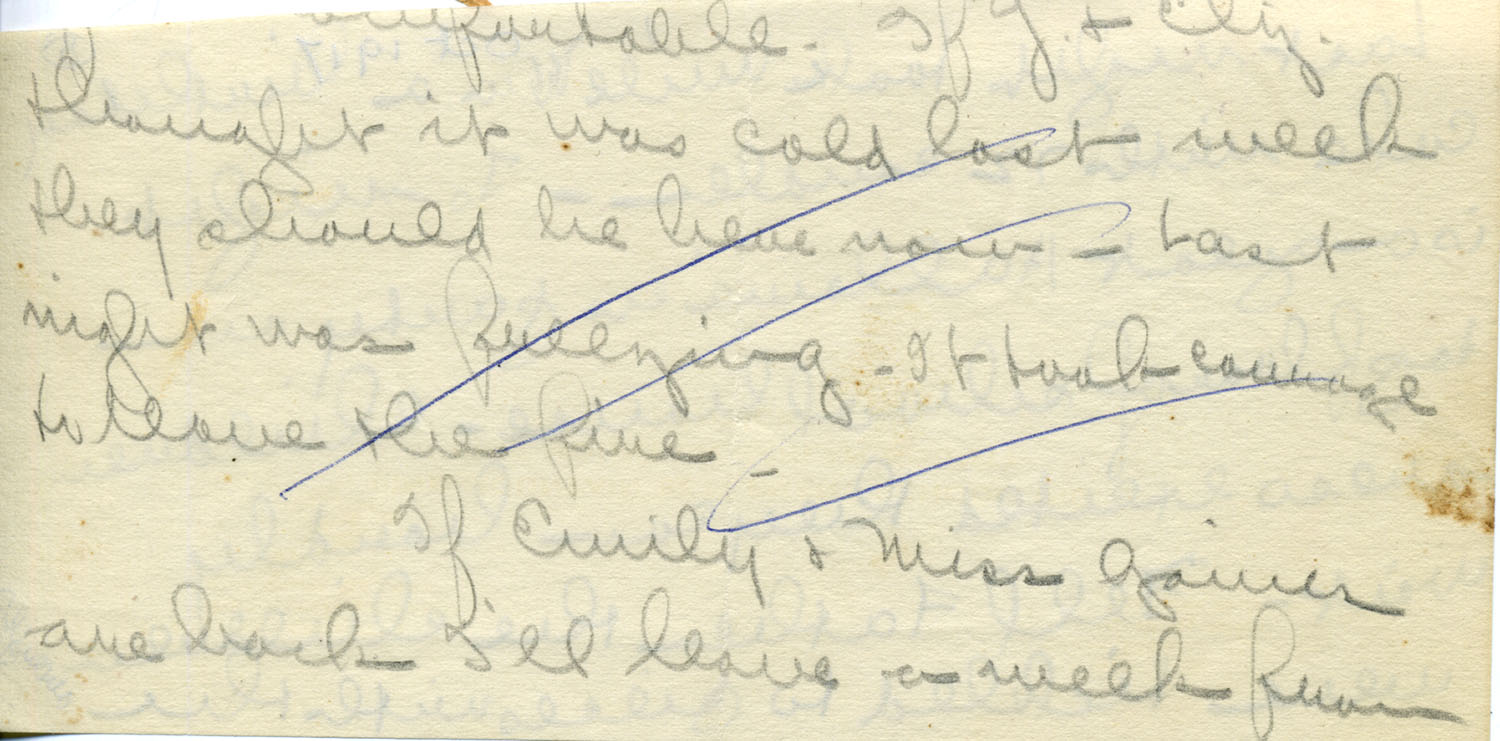 comfortable. If J. & Eliz.
thought it was cold last week
they should be here now – Last
night was freezing – It took courage
to leave the fire –
If Emily & Miss Gaines
are back I'll leave a week from